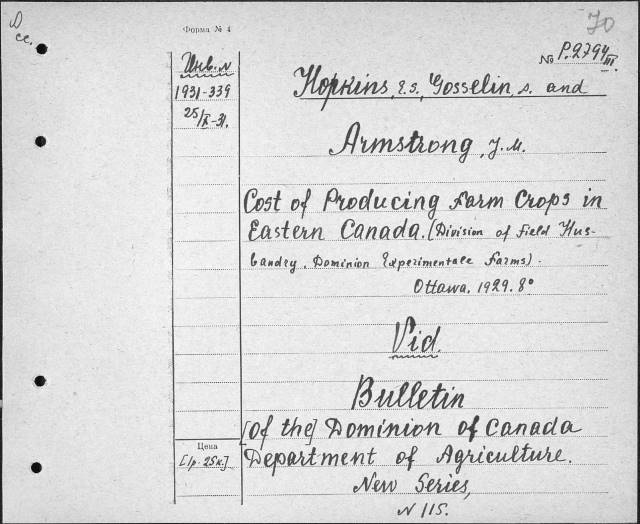 D
cc.
Форма № 4
70
№ P.2794
III.
Инв. №
1931-339
25/IX-31.
Hopkins, E.S., Gosselin, A. and
Armstrong, J.M.
Cost of Producing Farm Crops in
Eastern Canada. (Division of Field Hus-
bandry. Dominion Experimentale Farms).
Ottawa. 1929. 8°
Vid.
Bulletin
[of the] Dominion of Canada
Department of Agriculture.
New Series,
N 115.
Цена
[1р. 25к.]